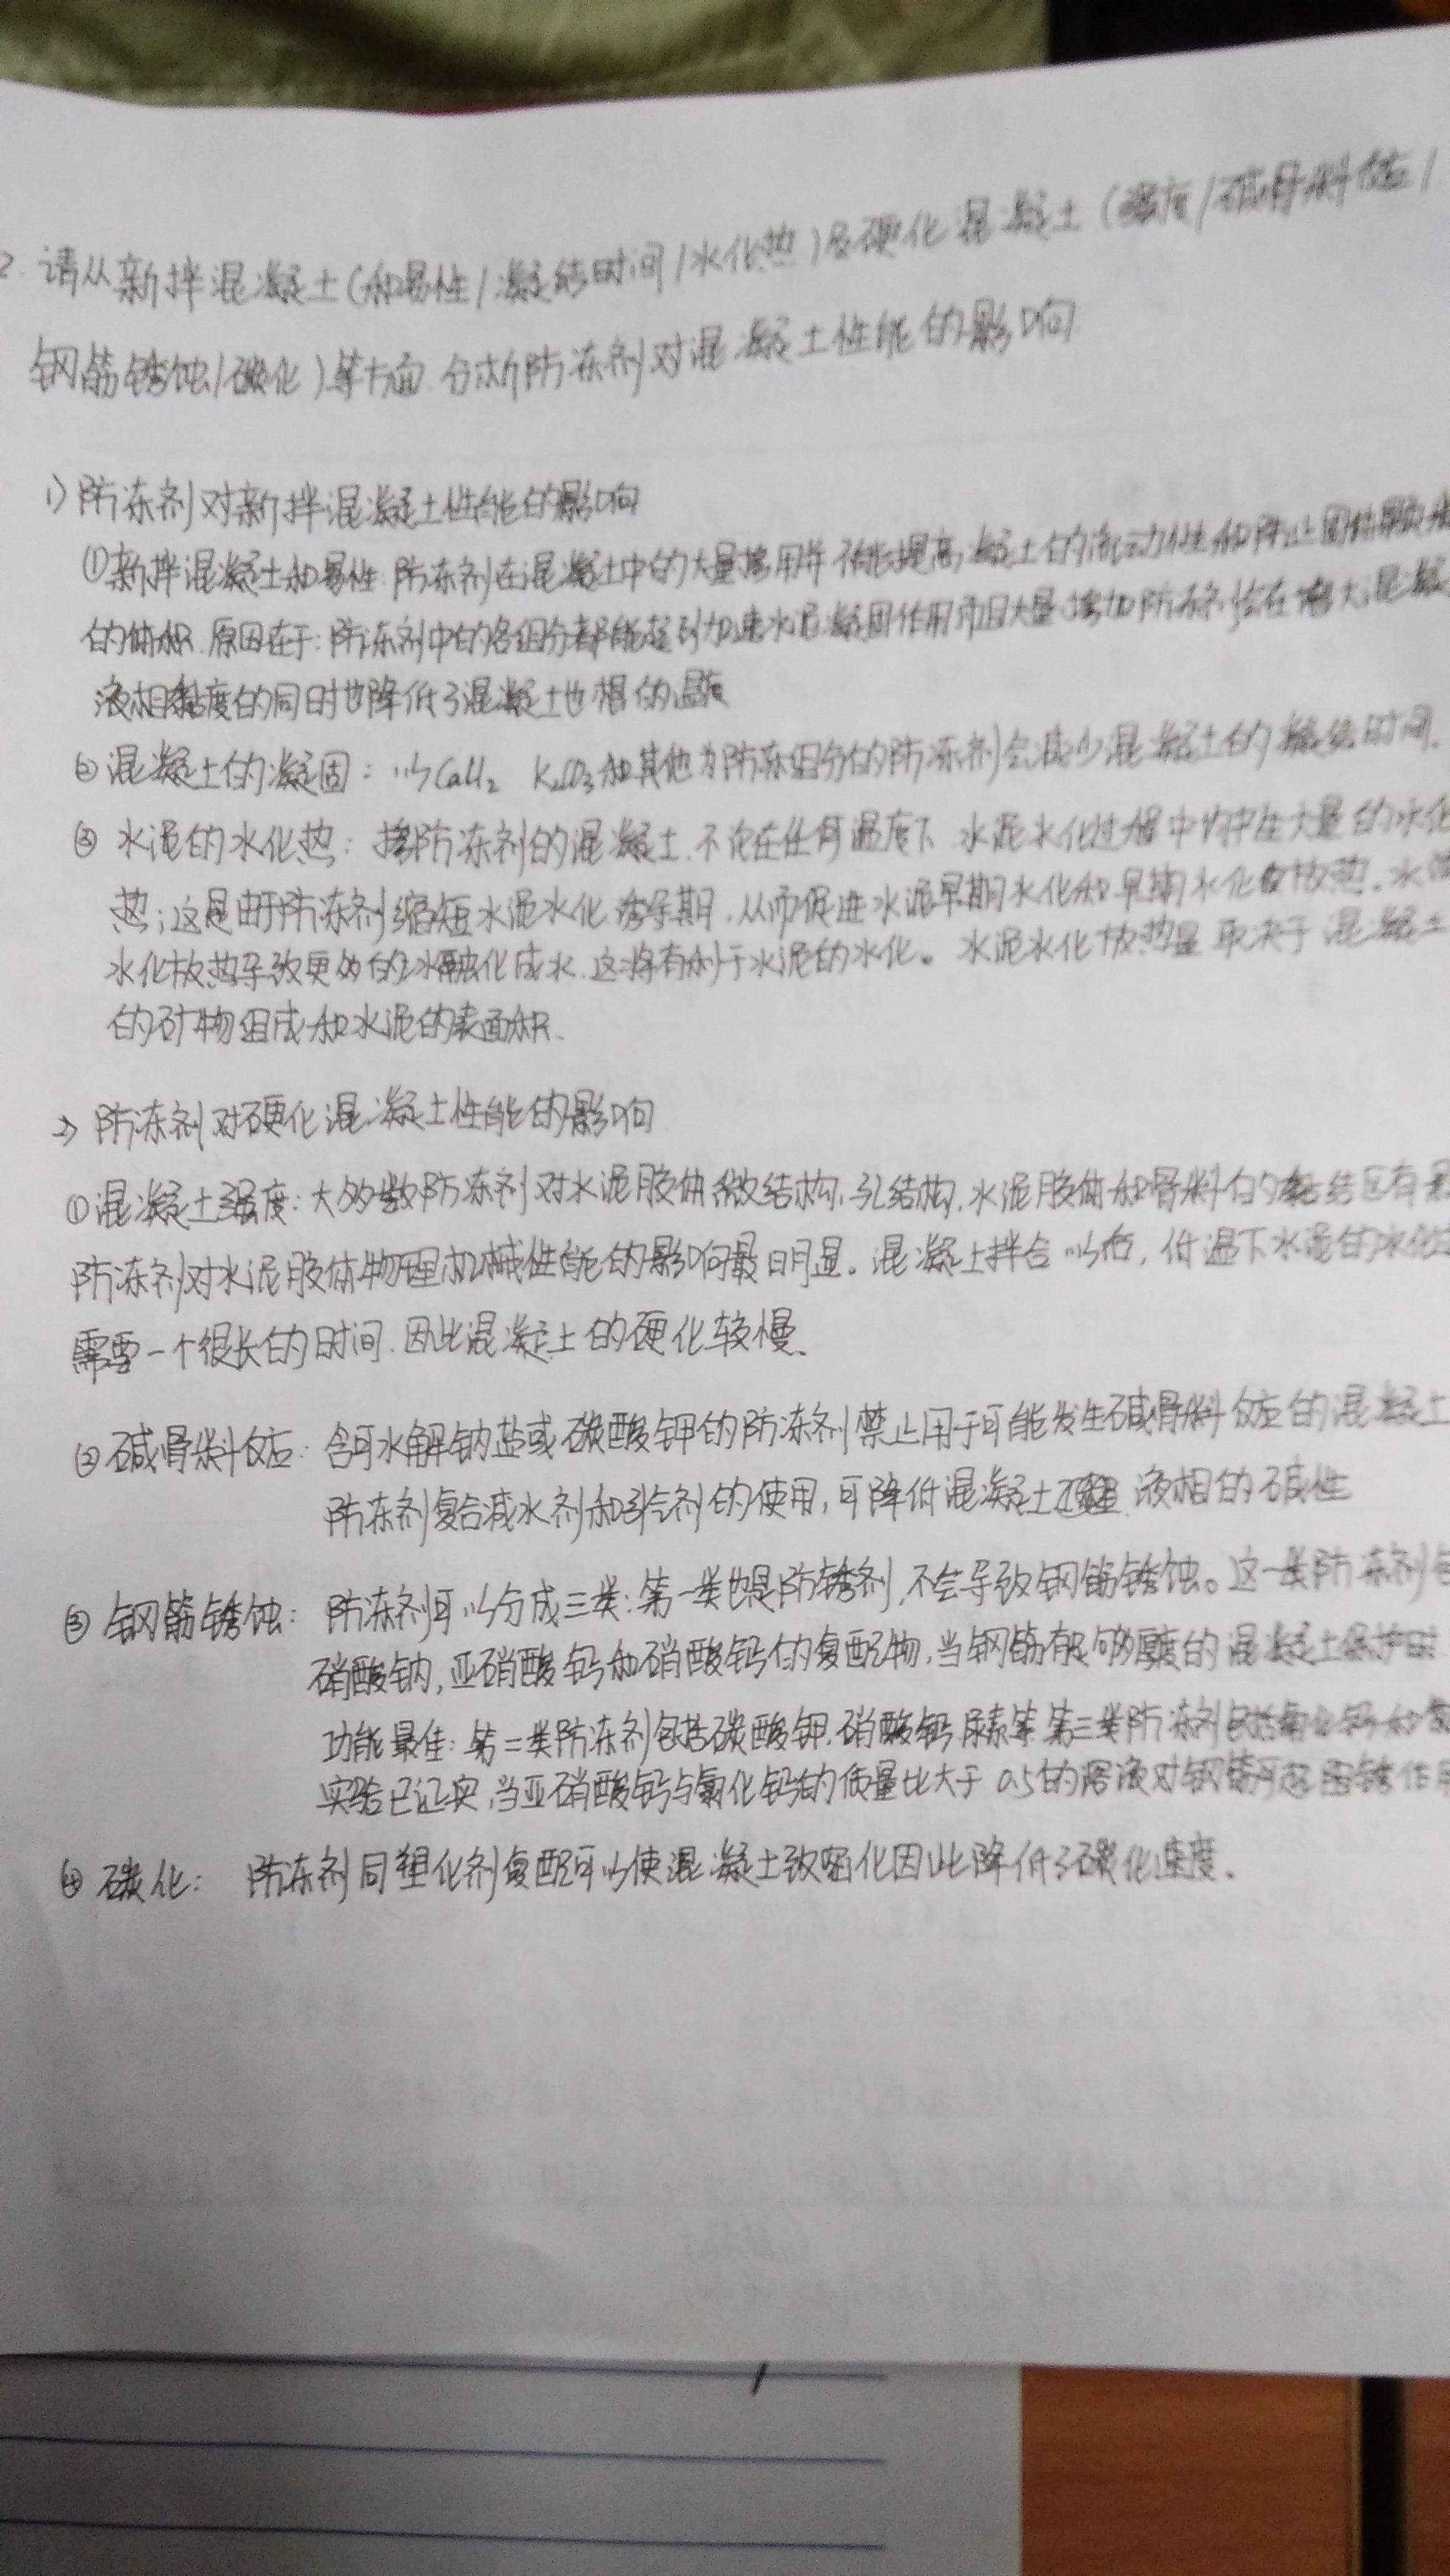 2. 请从新拌混凝土(和易性/凝结时间/水化热)及硬化混凝土(强度/碱骨料反应/
钢筋锈蚀/碳化)等方面 分析防冻剂对混凝土性能的影响
1) 防冻剂对新拌混凝土性能的影响
①新拌混凝土和易性: 防冻剂在混凝土中的大量掺用并不能提高混凝土的流动性和阻止固体颗粒
的体积. 原因在于: 防冻剂中的各组分都能起到加速水泥凝固作用而且大量增加防冻剂会在增大混凝
液相黏度的同时也降低了混凝土也相的温度
② 混凝土的凝固: 以CaCl₂ K₂CO₃和其他为防冻组分的防冻剂会减少混凝土的凝结时间.
③ 水泥的水化热: 掺防冻剂的混凝土. 不论在任何温度下 水泥水化过程中均产生大量的水化
热; 这是由于防冻剂缩短水泥水化诱导期, 从而促进水泥早期水化和早期水化放热. 水
水化放热导致更多的冰融化成水. 这将有利于水泥的水化。水泥水化放热量取决于混凝土
的矿物组成和水泥的表面积.
2) 防冻剂对硬化混凝土性能的影响
①混凝土强度: 大多数防冻剂对水泥胶体微结构, 孔结构, 水泥胶体和骨料的黏结区有
防冻剂对水泥胶体物理机械性能的影响最明显。混凝土拌合以后, 低温下水泥的水化
需要一个很长的时间. 因此混凝土的硬化较慢.
② 碱骨料反应: 含可水解钠盐或碳酸钾的防冻剂禁止用于可能发生碱骨料反应的混凝土
防冻剂复合减水剂和引气剂的使用, 可降低混凝土 液相的碱性
③ 钢筋锈蚀: 防冻剂可以分成三类: 第一类也是防锈剂, 不会导致钢筋锈蚀。这一类防冻剂
硝酸钠, 亚硝酸钙和硝酸钙的复配物, 当钢筋有足够厚度的混凝土保护时
功能最佳: 第二类防冻剂包括碳酸钾. 硝酸钙 尿素等 第三类防冻剂包括氯化钙和
实验已证实, 当亚硝酸钙与氯化钙的质量比大于 0.5的溶液对钢筋可起阻锈作用
④ 碳化: 防冻剂同塑化剂复配可以使混凝土致密化因此降低了碳化速度.